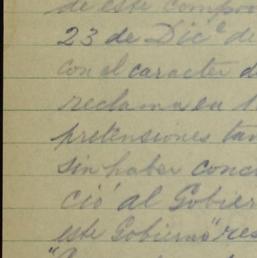 de este compro
23 de Dicº de
con el caracter d
reclama en 1
pretensiones tan
sin haber conc
ció al Gobier
este Gobierno "res